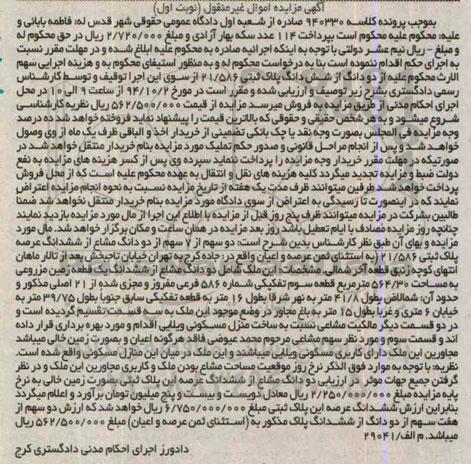 آگهی مزایده اموال غیرمنقول (نوبت اول)
بموجب پرونده کلاسه ۹۴۰۳۳۰ صادره از شعبه اول دادگاه عمومی حقوقی شهر قدس له: فاطمه بابانی و
علیه: محکوم علیه محکوم است بپرداخت ۱۱۴ عدد سکه بهار آزادی و مبلغ ۲/۷۲۰/۰۰۰ ریال در حق محکوم له
و مبلغ - ریال نیم عشر دولتی با توجه به اینکه اجرائیه صادره به محکوم علیه ابلاغ شده و در مهلت مقرر نسبت
به اجرای حکم اقدام ننموده است بنا به درخواست محکوم له و به منظور استیفای محکوم به و هزینه اجرایی سهم
الارث محکوم علیه از دو دانگ از شش دانگ پلاک ثبتی ۲۱/۵۸۶ از سوی این اجرا توقیف و توسط کارشناس
رسمی دادگستری بشرح زیر توصیف و ارزیابی شده و مقرر است در مورخ ۹۴/۱۰/۲ از ساعت ۹ الی ۱۰ در محل
اجرای احکام مدنی از طریق مزایده به فروش میرسد مزایده از قیمت ۵۶۲/۵۰۰/۰۰۰ ریال نظریه کارشناسی
شروع میشود و به هر شخص حقیقی و حقوقی که بالاترین قیمت را پیشنهاد نماید فروخته خواهد شد ده درصد
وجه مزایده فی المجلس بصورت وجه نقد یا چک بانکی تضمینی از خریدار اخذ و الباقی ظرف یک ماه از وی وصول
خواهد شد و پس از انجام مراحل قانونی و صدور حکم تملیک مورد مزایده بنام خریدار منتقل خواهد شد در
صورتیکه در مهلت مقرر خریدار وجه مزایده را پرداخت ننماید سپرده وی پس از کسر هزینه های مزایده به نفع
دولت ضبط و مزایده تجدید میگردد کلیه هزینه های نقل و انتقال به عهده محکوم علیه است که از محل فروش
پرداخت خواهد شد طرفین میتوانند ظرف مدت یک هفته از تاریخ مزایده نسبت به نحوه انجام مزایده اعتراض
نمایند که در اینصورت تا رسیدگی به اعتراض از سوی دادگاه مورد مزایده بنام خریدار منتقل نخواهد شد ضمنا
طالبین بشرکت در مزایده میتوانند ظرف پنج روز قبل از مزایده با اطلاع این اجرا از مال مورد مزایده بازدید نمایند
چنانچه روز مزایده مصادف با ایام تعطیل باشد روز بعد مزایده در همان ساعت و مکان برگزار خواهد شد. مال مورد
مزایده و بهای آن طبق نظر کارشناس بدین شرح است: دو سهم از ۷ سهم از دو دانگ مشاع از ششدانگ عرصه
پلاک ثبتی ۲۱/۵۸۶ (به استثنای ثمن عرصه و اعیان) واقع در: جاده کرج به تهران خیابان تاجبخش بعد از تالار ماهان
انتهای کوچه زنبق قطعه آخر شمالی. مشخصات این ملک شامل دو دانگ مشاع از ششدانگ یک قطعه زمین مزروعی
به مساحت ۵۶۴/۳۰ مترمربع قطعه سوم تفکیکی شماره ۵۸۶ فرعی مفروز و مجزی شده از ۲۱ اصلی مذکور و
حدود آن: شمالاض بطول ۴۱/۸ متر به نهر شرقا بطول ۱۶ متر به قطعه تفکیکی سابق جنوبا بطول ۳۹/۷۵ متر به
خیابان ۶ متری و غربا بطول ۱۵ متر به باغ مجاور در وضع موجود این ملک به سه قسمت تقسیم گردیده است و
در دو قسمت دیگر مالکیت مشاعی نسبت به ساخت منزل مسکونی ویلایی اقدام و مورد بهره برداری قرار داده
اند و قسمت سوم و مورد نظر سهم مشاعی مرحوم محمد عیوضی فاقد هرگونه اعیان و بصورت زمین خالی میباشد
مجاورین این ملک دارای کاربری مسکونی ویلایی میباشند و این ملک در میان این منازل مسکونی واقع شده است.
نظریه: با توجه به موارد فوق الذکر نرخ روز موقعیت مساحت مشاع بودن ملک و کاربری مجاورین این ملک و در نظر
گرفتن جمیع جهات موثر در ارزیابی دو دانگ مشاع از ششدانگ عرصه این پلاک ثبتی بصورت زمین خالی به نرخ
پایه مزایده مبلغ ۲/۲۵۰/۰۰۰/۰۰۰ ریال معادل دویست و بیست و پنج میلیون تومان برآورد و اعلام میگردد
بنابراین ارزش ششدانگ عرصه این پلاک ثبتی مبلغ ۶/۷۵۰/۰۰۰/۰۰۰ ریال خواهد شد که ارزش دو سهم از
هفت سهم از دو دانگ از ششدانگ پلاک مذکور به (استثنای ثمن عرصه و اعیان) مبلغ ۵۶۲/۵۰۰/۰۰۰ ریال
میباشد. م الف/۲۹۰۴۱
دادورز اجرای احکام مدنی دادگستری کرج